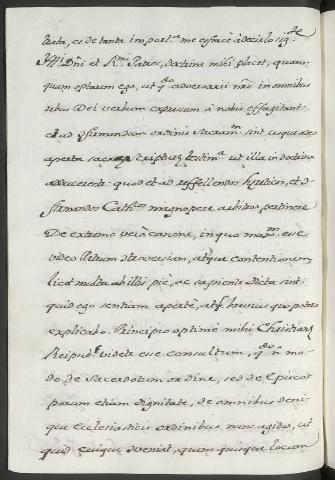 lata, es de tanta import.ª me esforcè à decirlo sig.te
Ill.mi Dñi et R.mi Patres, doctrina mihi placet, quam-
quam optarem ego, ut q.do adversarii nři in omnibus
rebus Dei verbum expressum à nobis effagitant
et ad confirmandum ordinis sacram.m sint usquadeo
aperta sacræ scripturæ testim.ª ut illa in doctrina
adducerent: quod et ad refellendos hæreticos, et con-
firmandos Cath.cos magnopere arbitror pertinere
De extremo verò canone, in quo ma.m esse
video litium controversiam, atque contentionum
licet multa ab illis piè, ac sapienter dicta sint
quid ego sentiam apertè, atq. brevius quo potero
explicabo. Principio optimè mihi Christianæ
Reipub.æ videtur esse consultum, q.do ñ mo-
do de Sacerdotum ordine, sed de Episco-
porum etiam dignitate, de omnibus deni-
que Ecclesiasticis ordinibus nunc agitur, ut
quid cuique conveniat, quem quisque locum